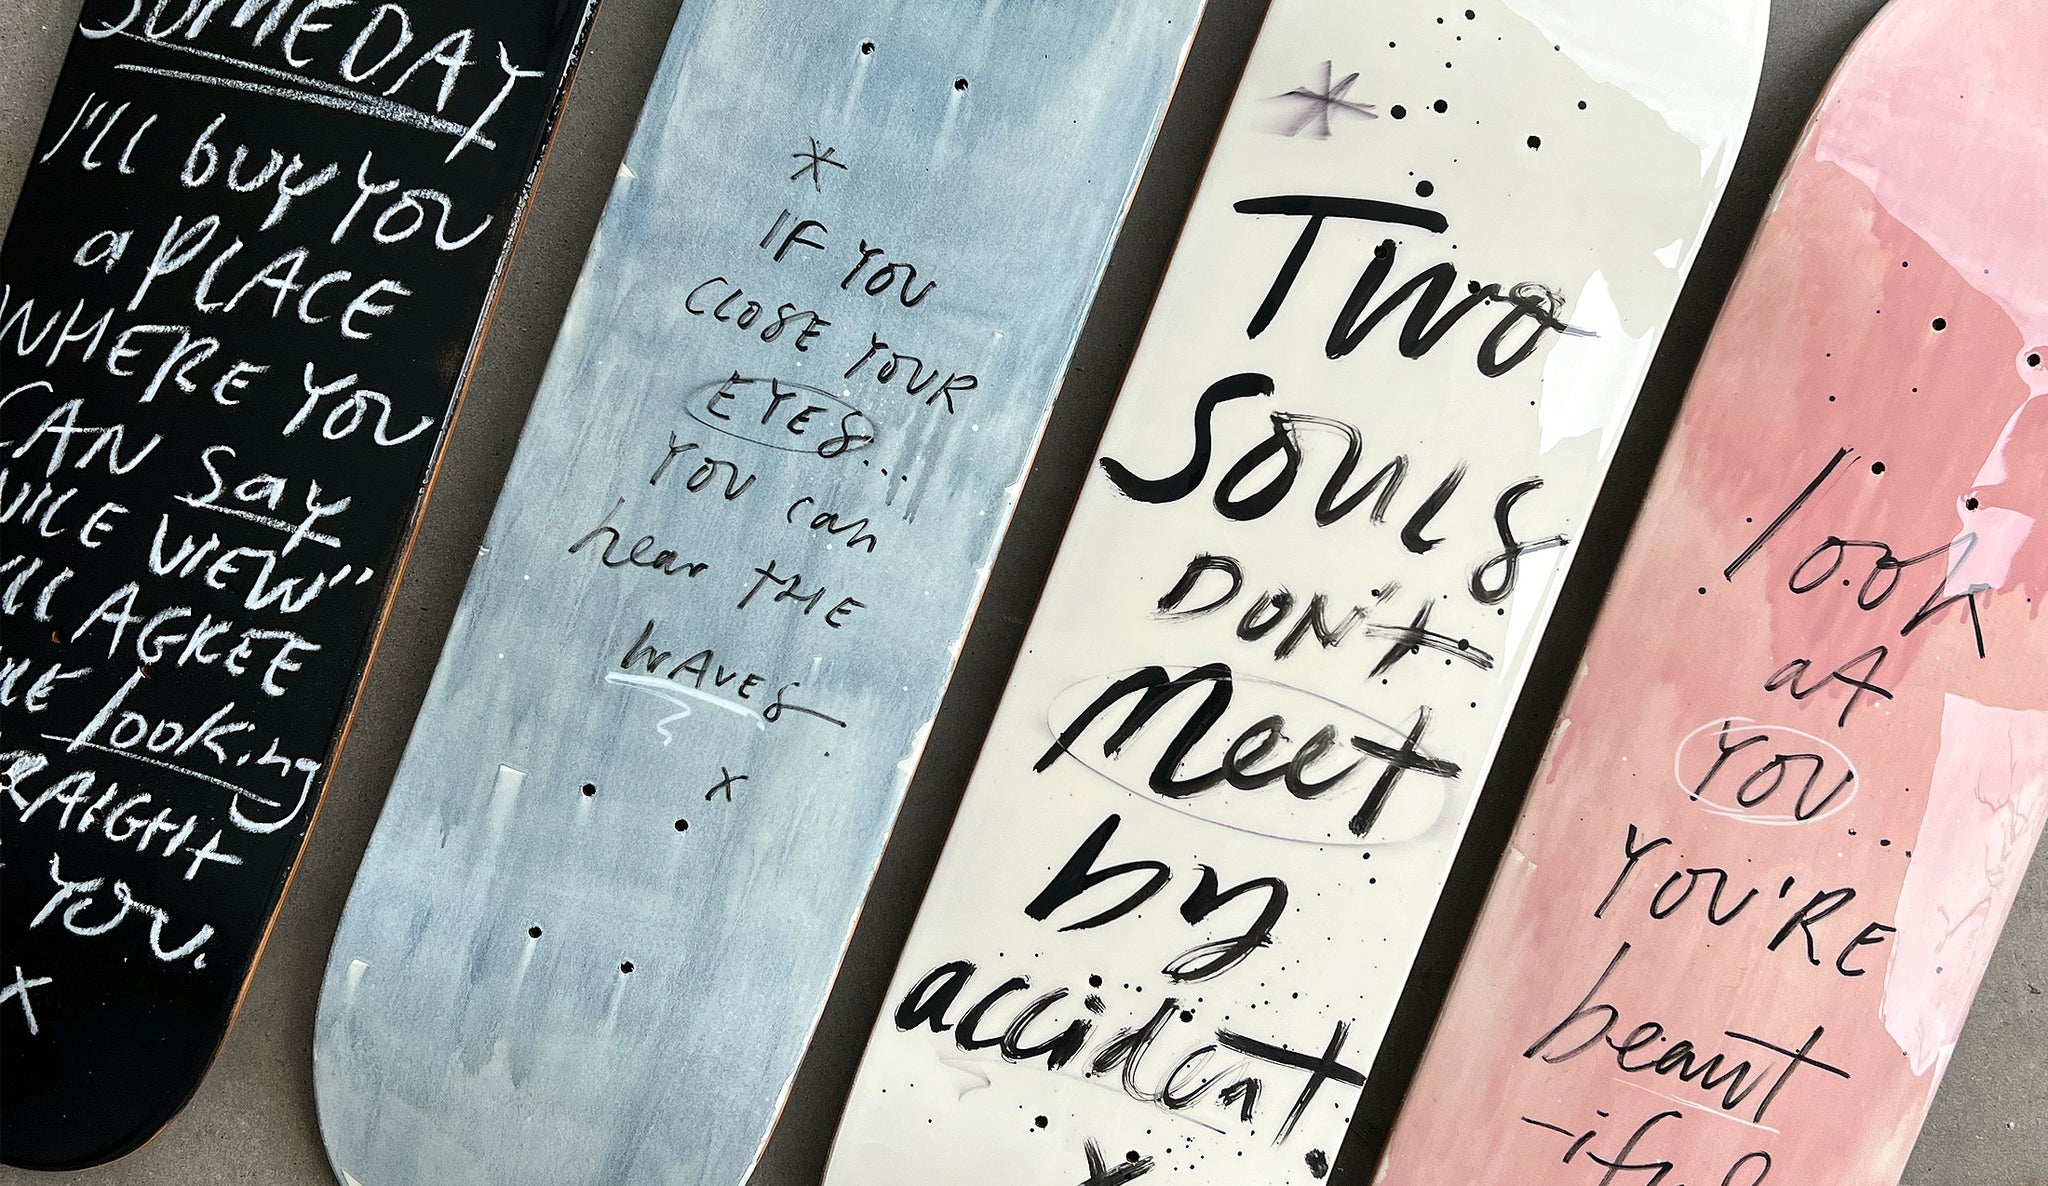 SOMEDAY
I'll buy YOU
a PLACE
WHERE YOU
CAN say
NICE VIEW"
I'll AGREE
looking
YOU.
x
*
IF YOU
CLOSE YOUR
EYES...
YOU can
hear THE
WAVES
x
*
Two
Souls
DON't
Meet
by
accident.
x
look
at
YOU
YOU'RE
beaut
-iful